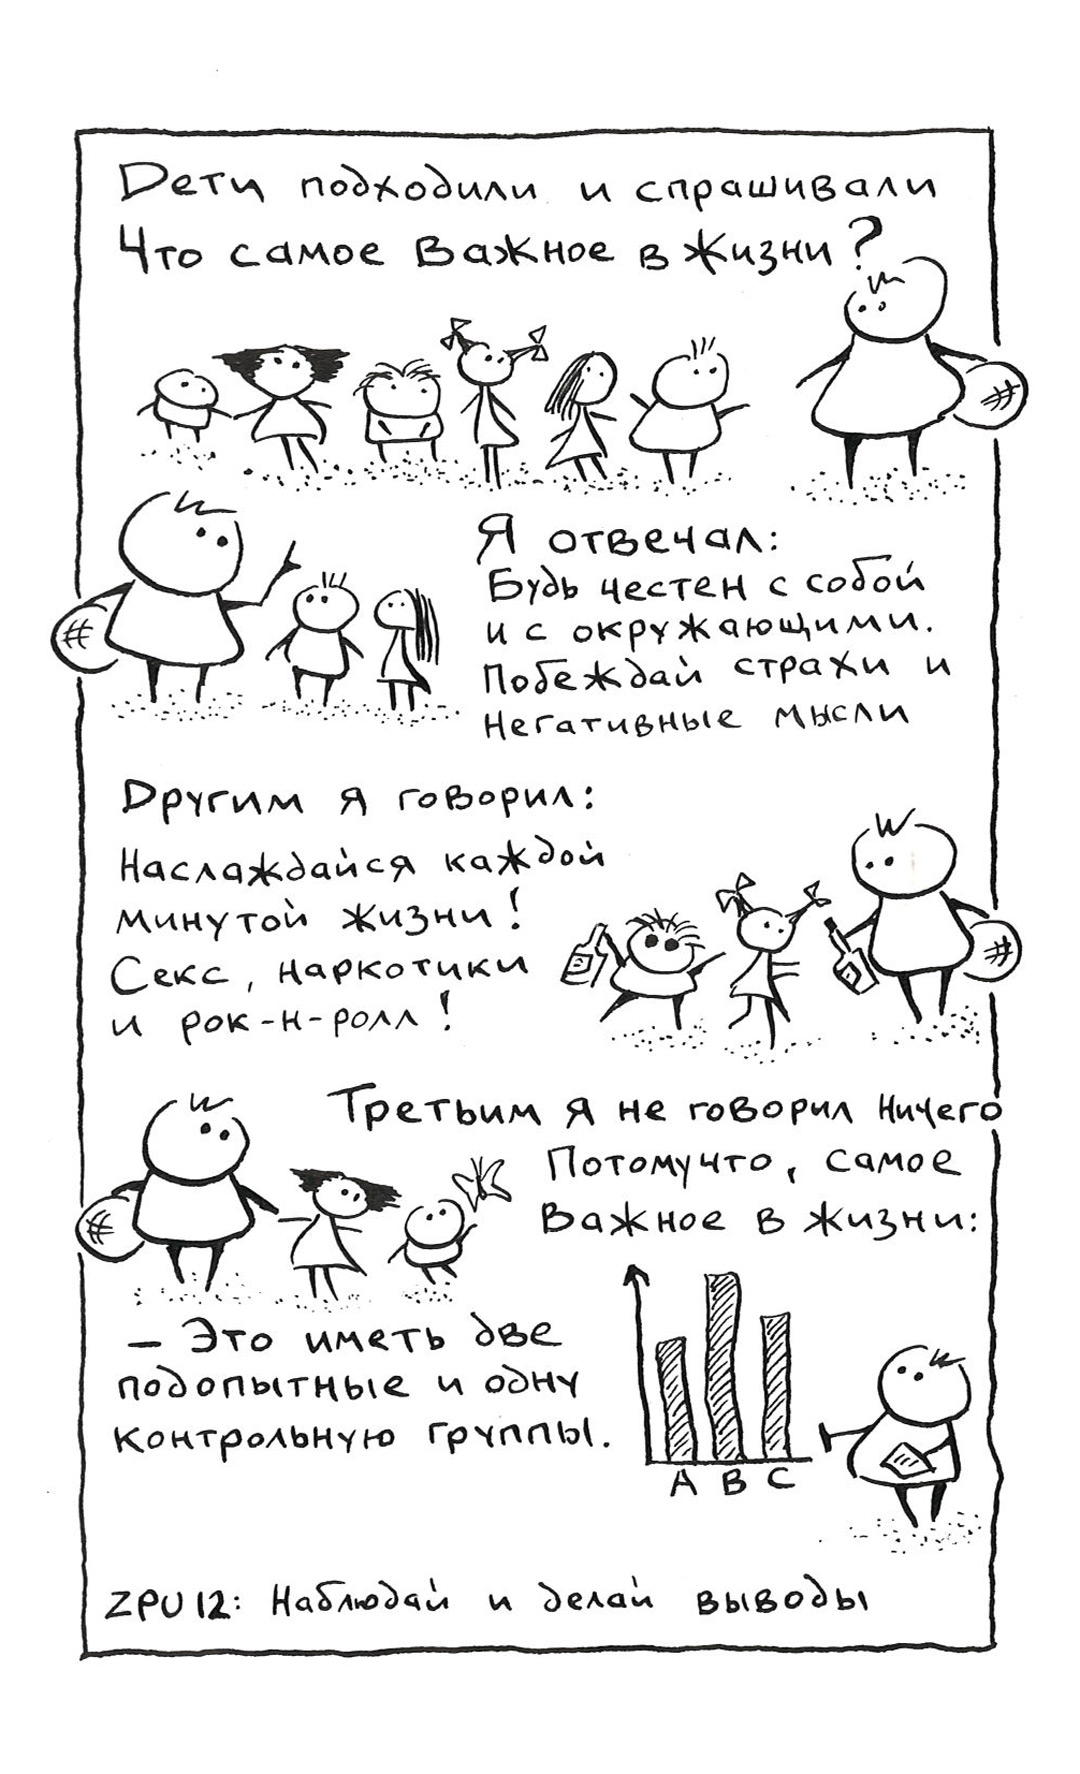 Дети подходили и спрашивали
Что самое важное в жизни?
Я отвечал:
Будь честен с собой
и с окружающими.
Побеждай страхи и
негативные мысли
Другим я говорил:
Наслаждайся каждой
минутой жизни!
Секс, наркотики
и рок-н-ролл!
Третьим я не говорил ничего
Потомучто, самое
важное в жизни:
– Это иметь две
подопытные и одну
контрольную группы.
A B C
ZPU12: Наблюдай и делай выводы